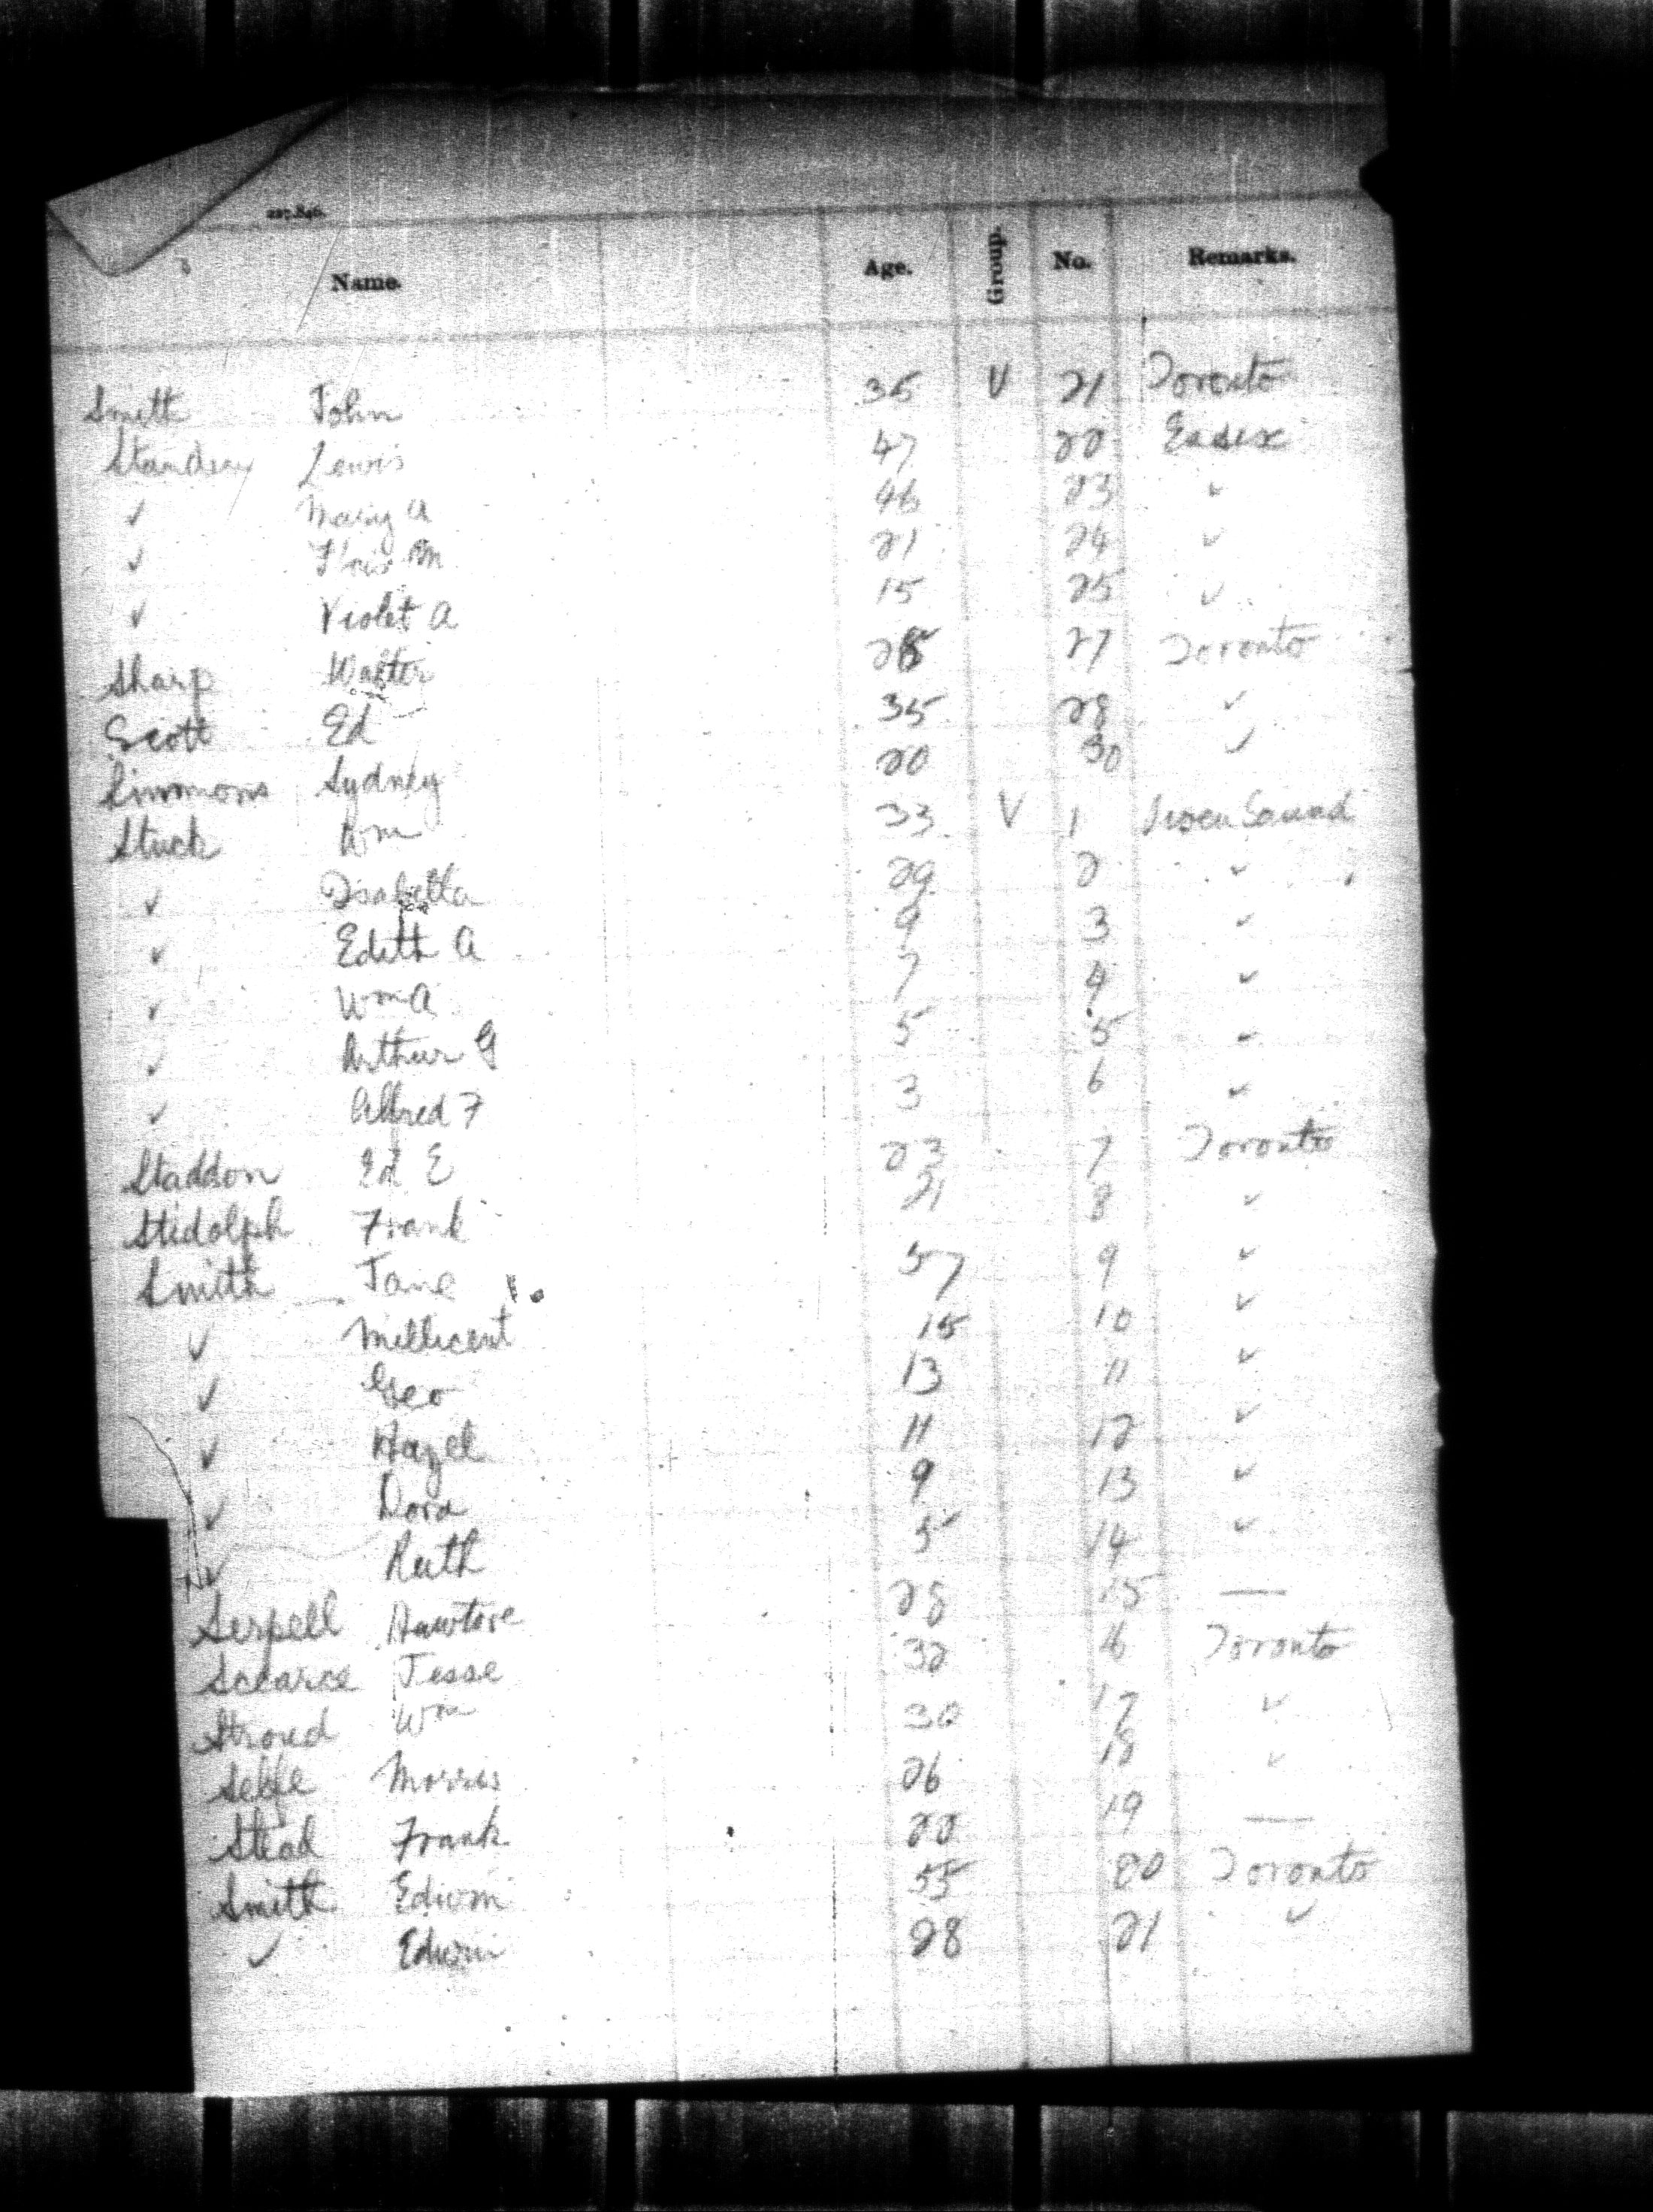 227.846.
Name. Age. Group. No. Remarks.
Smith John 35 V 21 Toronto
Standen Lewis 47 22 Essex
✓ Mary A 46 23 ✓
✓ M 21 24 ✓
✓ Violet A 15 25 ✓
Sharp Walter 27 Toronto
Scott Ed 35 28 ✓
Simmons Sydney 20 30 ✓
Stuck Wm 33 V 1 Owen Sound
✓ Isabella 29 2 ✓
✓ Edith A 9 3 ✓
✓ Wm A 7 4 ✓
✓ Arthur G 5 5 ✓
✓ Alfred F 3 6 ✓
Staddon Ed E 23 7 Toronto
Stidolph Frank 21 8 ✓
Smith Jane 57 9 ✓
✓ Millicent 15 10 ✓
✓ Geo 13 11 ✓
✓ Hazel 11 12 ✓
✓ Dora 9 13 ✓
✓ Ruth 5 14 ✓
Serpell 28 15 —
Scearce Jesse 32 16 Toronto
Stroud Wm 30 17 ✓
Selfe Morris 26 18 ✓
Stead Frank 22 19 —
Smith Edwin 55 20 Toronto
✓ Edwin 28 21 ✓